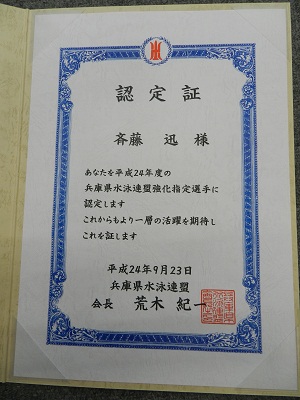 認定証
斉藤 迅 様
あなたを平成24年度の
兵庫県水泳連盟強化指定選手に
認定します
これからもより一層の活躍を期待し
これを証します
平成24年9月23日
兵庫県水泳連盟
会長 荒木 紀一